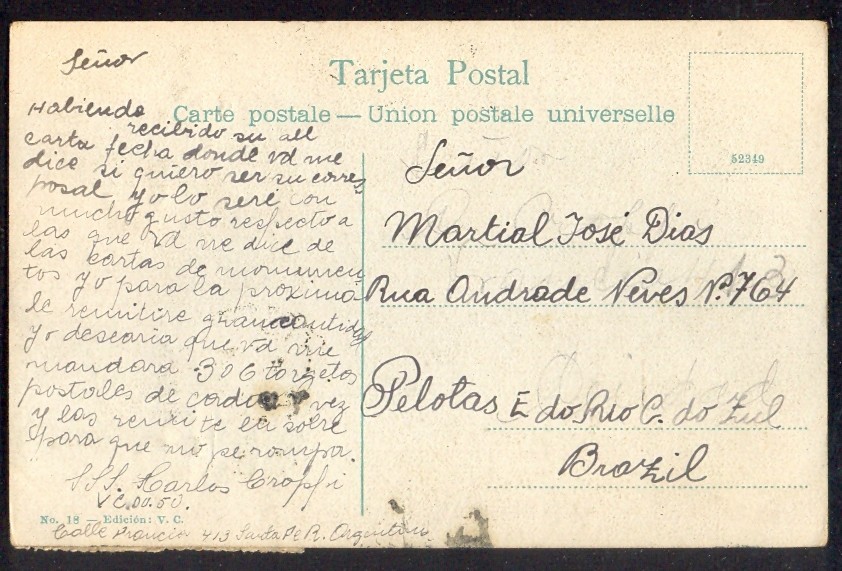 Tarjeta Postal
Carte postale — Union postale universelle
52349
Señor
Habiendo
recibido su att
carta fecha donde vd me
dice si quiero ser su corres
posal yo lo seré con
mucho gusto respecto a
las que vd me dice de
las cartas de monumen
tos yo para la proxima
le remitire gran cantidad
yo desearia que vd me
mandara 3 o 6 targetas
postales de cada vez
y las remite en sobre
para que no se rompa.
SSS. Carlos
No. 18 — Edición: V. C.
Calle Francia 413 Santa Fe R. Argentina
Señor
Martial José Dias
Rua Andrade Neves Nº. 764
Pelotas E do Rio G. do Zul
Brazil